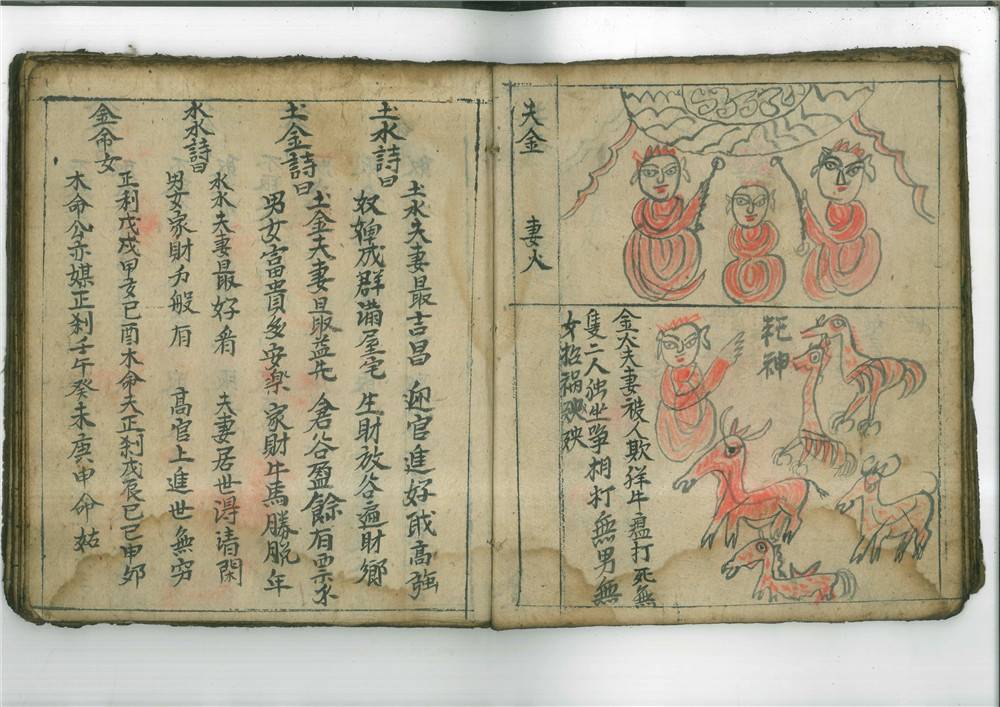 夫金 妻火
耗神
金火夫妻被人欺 牂牛瘟打死無
隻二人独坐爭相打無男無
女招祸殃殃
土水詩曰
土水夫妻最吉昌 迎官進好戝高強
奴婢成群满屋宅 生財放谷遍財鄉
土金詩曰
土金夫妻最益先 倉谷盈餘有票子
男女富貴多安楽 家財牛馬勝脱年
水水詩曰
水水夫妻最好看 夫妻居世淂请閑
男女家財力般有 高官上進世無穷
金命女
正利戊戌甲亥己酉木命夫正刹戊辰己巳申卯
木命公亦媒正刹壬午癸未庚申命姑